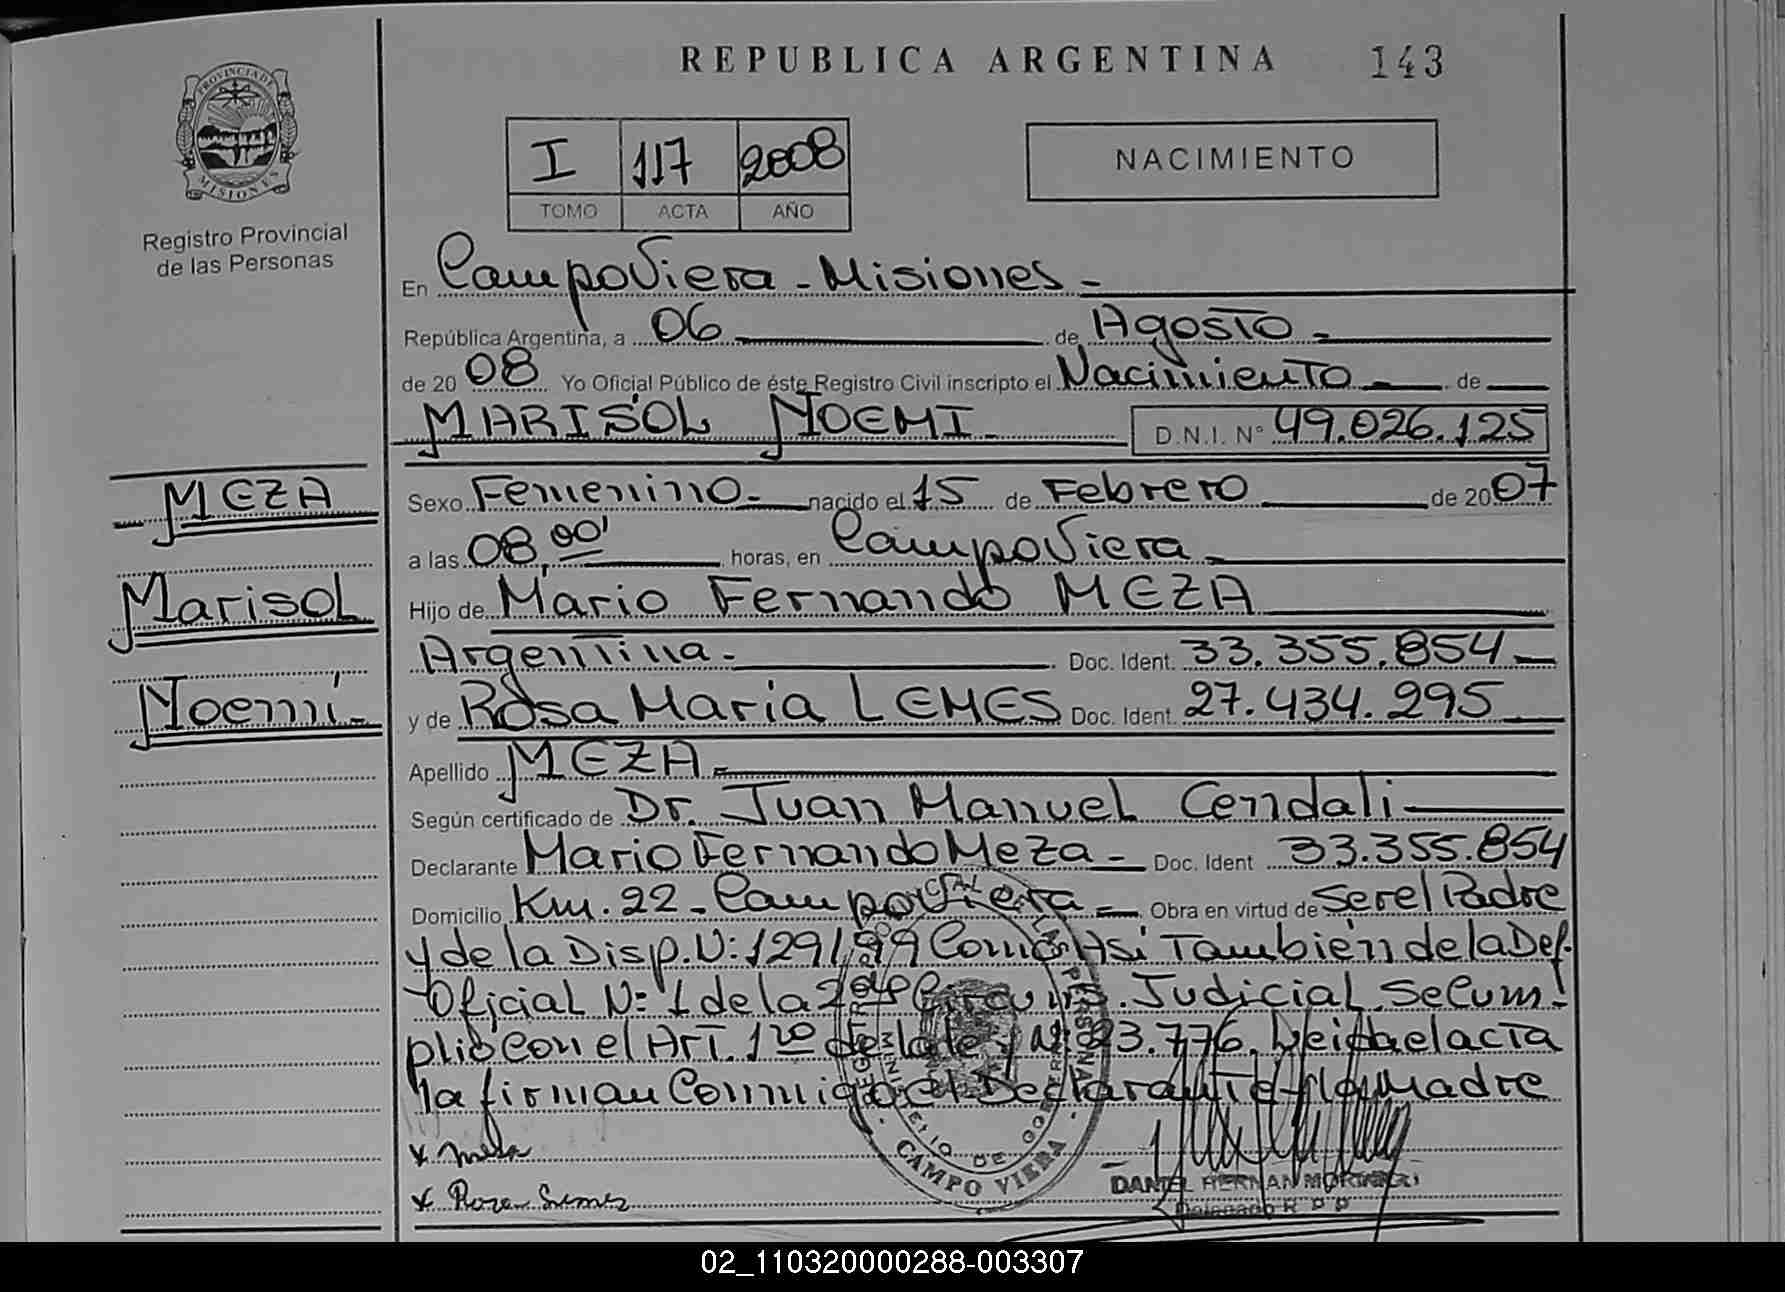 REPUBLICA ARGENTINA 143
PROVINCIA DE MISIONES
Registro Provincial
de las Personas
I 117 2008
TOMO ACTA AÑO
NACIMIENTO
En Campo Viera - Misiones -
República Argentina, a 06 de Agosto -
de 20 08 Yo Oficial Público de éste Registro Civil inscripto el Nacimiento - de
MARISOL NOEMI D.N.I. N° 49.026.125
MEZA
Marisol
Noemí -
Sexo Femenino - nacido el 15 de Febrero de 20 07
a las 08,00' horas, en Campo Viera -
Hijo de Mario Fernando MEZA
Argentina - Doc. Ident. 33.355.854 -
y de Rosa Maria LEMES Doc. Ident 27.434.295
Apellido MEZA -
Según certificado de Dr. Juan Manuel Cendali -
Declarante Mario Fernando Meza - Doc. Ident 33.355.854
Domicilio Km. 22 - Campo Viera - Obra en virtud de Ser el Padre
y de la Disp. N: 129/99 Como Asi Tambien de la Def.
Oficial N: 1 de la 2da Circuns. Judicial Se Cum-
plio Con el Art. 1ro de la ley N: 23.776. Leida el acta
la firman Conmigo el Declarante y la Madre
x Meza
x Rosa Lemes
CAMPO VIERA
DANIEL HERNAN
Delegado R P P
02_110320000288-003307